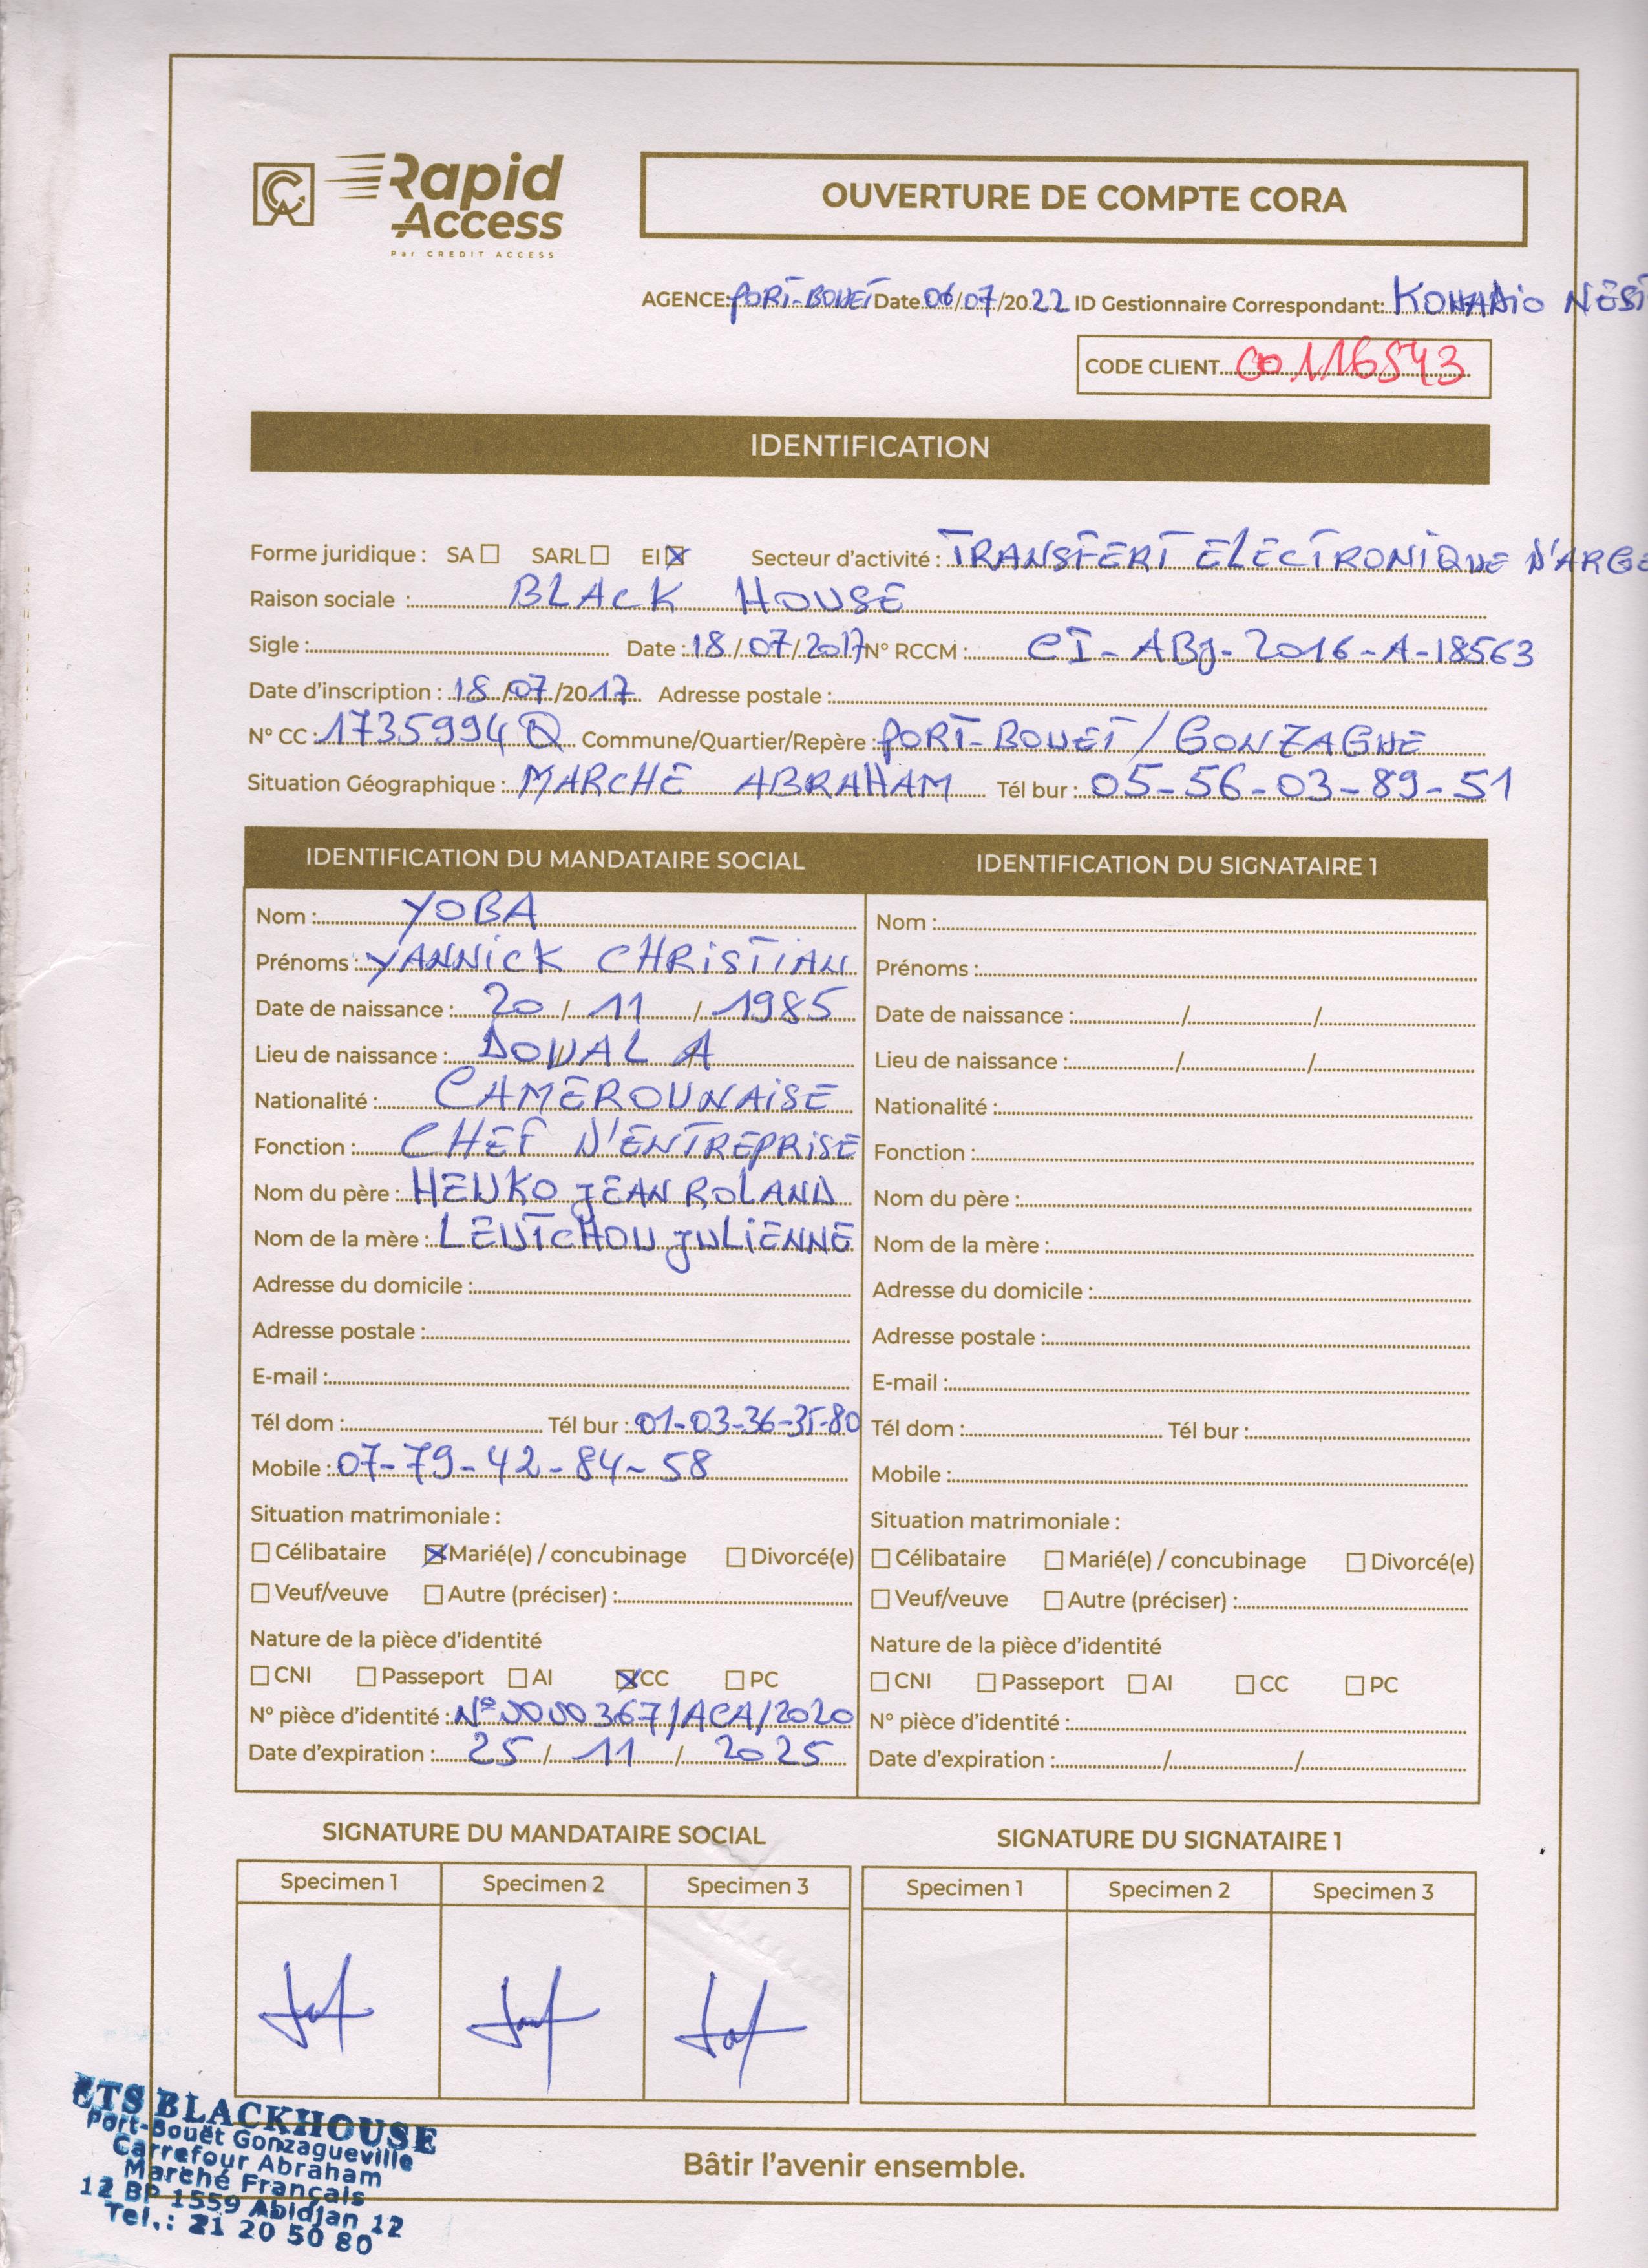 Rapid
Access
Par CREDIT ACCESS
OUVERTURE DE COMPTE CORA
AGENCE: PORT-BOUET Date 06/07/2022 ID Gestionnaire Correspondant: KOUADIO
CODE CLIENT 00116543
IDENTIFICATION
Forme juridique : SA ☐ SARL ☐ EI ☒ Secteur d'activité : TRANSFERT ELECTRONIQUE D'ARGE
Raison sociale : BLACK HOUSE
Sigle : Date : 18/07/2017 N° RCCM : CI-ABJ-2016-A-18563
Date d'inscription : 18/07/2017 Adresse postale :
N° CC : 1735994Q Commune/Quartier/Repère : PORT-BOUET / GONZAGUE
Situation Géographique : MARCHE ABRAHAM Tél bur : 05-56-03-89-51
IDENTIFICATION DU MANDATAIRE SOCIAL IDENTIFICATION DU SIGNATAIRE 1
Nom : YOBA Nom :
Prénoms : YANNICK CHRISTIAN Prénoms :
Date de naissance : 20/11/1985 Date de naissance : / /
Lieu de naissance : DOUALA Lieu de naissance : / /
Nationalité : CAMEROUNAISE Nationalité :
Fonction : CHEF D'ENTREPRISE Fonction :
Nom du père : HEUKO JEAN ROLAND Nom du père :
Nom de la mère : LEUTCHOU JULIENNE Nom de la mère :
Adresse du domicile : Adresse du domicile :
Adresse postale : Adresse postale :
E-mail : E-mail :
Tél dom : Tél bur : 01-03-36-35-80 Tél dom : Tél bur :
Mobile : 07-79-42-84-58 Mobile :
Situation matrimoniale : Situation matrimoniale :
☐ Célibataire ☒ Marié(e) / concubinage ☐ Divorcé(e) ☐ Célibataire ☐ Marié(e) / concubinage ☐ Divorcé(e)
☐ Veuf/veuve ☐ Autre (préciser) : ☐ Veuf/veuve ☐ Autre (préciser) :
Nature de la pièce d'identité Nature de la pièce d'identité
☐ CNI ☐ Passeport ☐ AI ☒ CC ☐ PC ☐ CNI ☐ Passeport ☐ AI ☐ CC ☐ PC
N° pièce d'identité : N° 0000367/ACA/2020 N° pièce d'identité :
Date d'expiration : 25/11/2025 Date d'expiration : / /
SIGNATURE DU MANDATAIRE SOCIAL SIGNATURE DU SIGNATAIRE 1
Specimen 1 Specimen 2 Specimen 3 Specimen 1 Specimen 2 Specimen 3
ETS BLACKHOUSE
Port-Bouët Gonzagueville
Carrefour Abraham
Marché Français
12 BP 1559 Abidjan 12
Tel.: 21 20 50 80
Bâtir l'avenir ensemble.